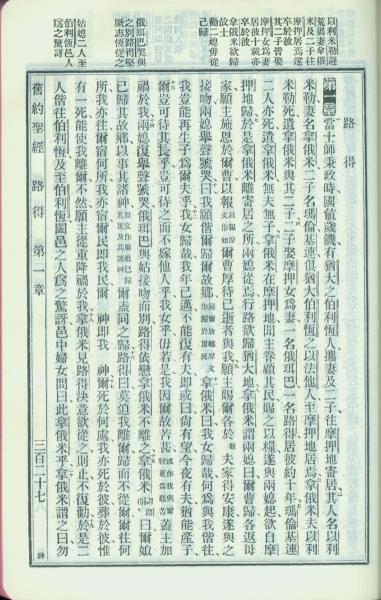 以利米勒遷
米及二子往
摩押居焉遂
卒於彼
其二子皆娶
摩押女為妻
居彼十載亦
卒於彼
拿俄米欲歸
故土
勸二媳毋從
己歸
俄珥巴與哭
之別路得堅
厥志恆從之
姑媳二人至
伯利恆邑人
為之驚訝
路得
第一章當士師秉政時國值歲饑有猶大之伯利恆人攜妻及二子往摩押地寄居其人名以利
米勒妻名拿俄米二子名瑪倫基連俱猶大伯利恆之以法他人至摩押地居焉拿俄米夫以利
米勒死遺拿俄米與其二子二子娶摩押女為妻一名俄珥巴一名路得居彼約十年瑪倫基連
二人亦死遺拿俄米無夫無子拿俄米在摩押地聞主眷顧其民賜之以糧遂與兩媳起欲自摩
押地歸於是拿俄米離寄居之所兩媳從焉行路欲歸猶大地拿俄米謂兩媳曰爾曹歸各返母
家願主施恩於爾曹以報爾曹厚待已逝者與我願主賜爾各於夫家得安康遂與之
接吻兩媳舉聲號哭曰我願偕爾歸爾故鄉拿俄米曰我女歸哉何為與我偕往
我豈能再生子為爾夫乎我女歸哉我年已邁不能復有夫即或曰尚有望今夜有夫猶能產子
爾豈可待其長乎豈可待之而不嫁他人乎我女乎毋若是我因爾故苦甚蓋主加
禍於我兩媳復舉聲號哭俄珥巴與姑接吻而別路得依戀拿俄米不離之拿俄米曰爾嫂
已歸其故鄉以事其諸神爾盍同之歸路得曰莫迫我離爾歸而不從爾爾往何
所我亦往爾宿何所我亦宿爾民即我民爾神即我神爾死於何處我亦死於彼葬於彼惟
有一死能使我離爾不然願主從重降禍於我拿俄米見路得決意欲從之則止不復勸於是二
人偕往伯利恆及至伯利恆闔邑之人為之驚訝邑中婦女問曰此拿俄米乎拿俄米謂之曰勿
舊約聖經 路得 第一章 三百二十七